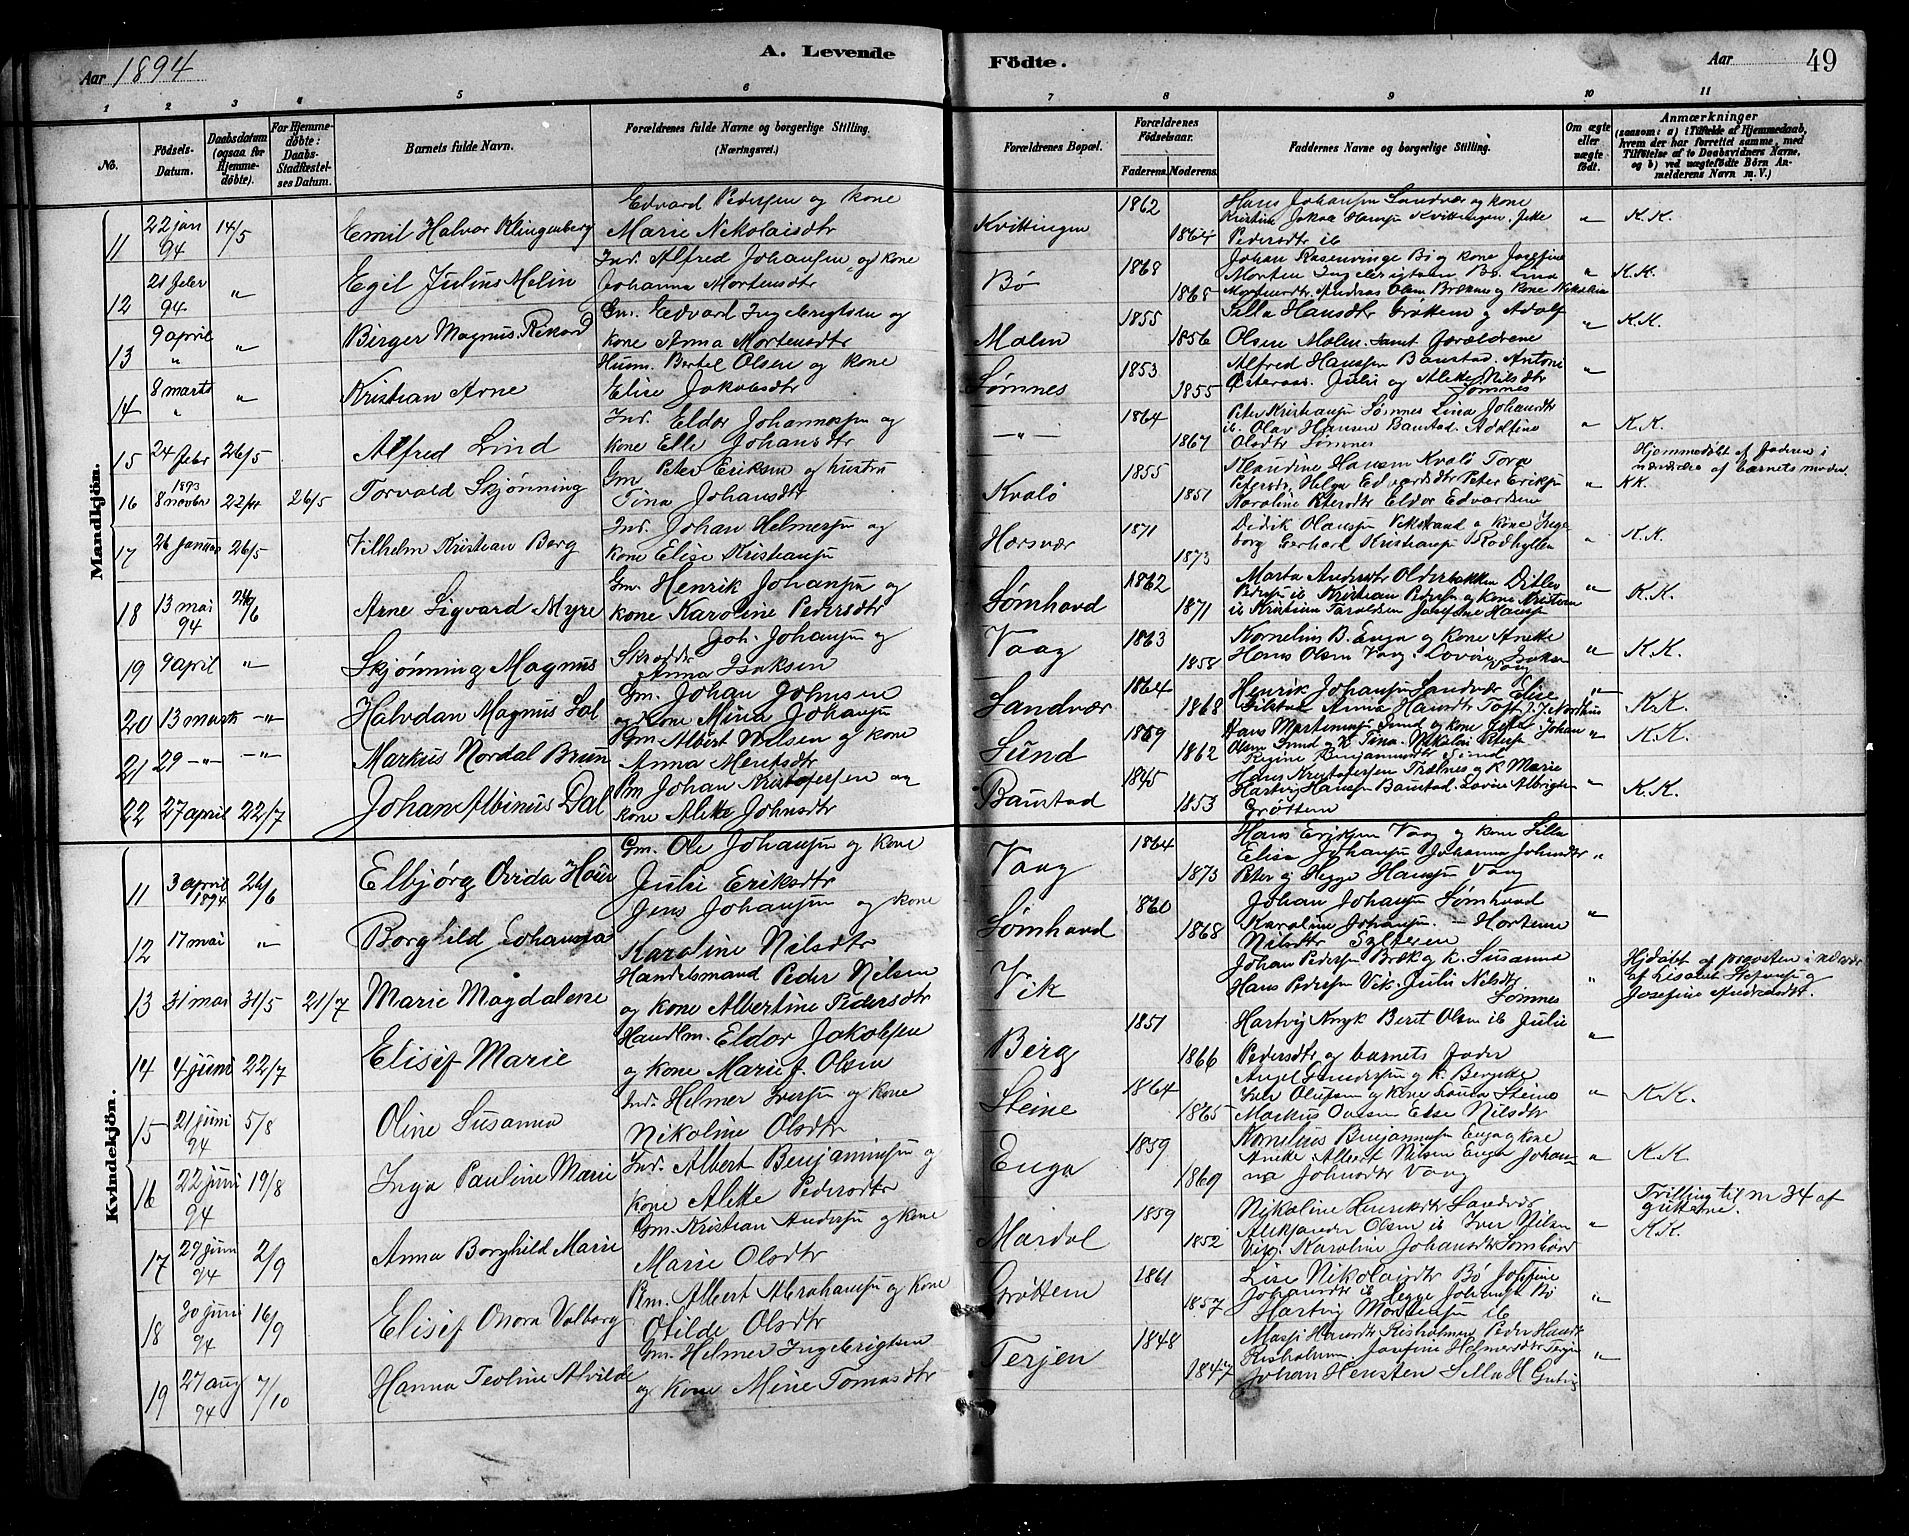 Aar 1894
A. Levende
Födte.
Aar
49
1 2 3 4 5 6 7 8 9 10 11
No.
Födsels-Datum.
Daabsdatum (ogsaa for Hjemme-döbte).
For Hjemme-döbte: Daabs-Stadfæstel-ses Datum.
Barnets fulde Navn.
Forældrenes fulde Navne og borgerlige Stilling. (Næringsvei.)
Forældrenes Bopæl.
Forældrenes Födselsaar.
Faderens. Moderens.
Faddernes Navne og borgerlige Stilling.
Om ægte eller uægte födt.
Anmærkninger
(saasom: a) i Tilfælde af Hjemmedaab, hvem der har forrettet samme, med Tilföielse af to Daabsvidners Navne, og b) ved uægtefödte Börn An-melderens Navn m. V.)
Mandkjön.
11 22 jan 94 14/5 Emil Halvor Klingenberg Edvard Pedersen og kone Marie Nikolaisdtr Kvittingen 1862 1864 Hans Johansen Sandvær og kone Pedersdtr ib " K.K.
12 21 febr 94 " Egil Julius Melin Ind. Alfred Johansen og kone Johanna Mortensdtr Bø 1868 1868 Johan Rasenvinge Bø og kone Josefine " K.K.
13 9 april " " Birger Magnus Rikard Gm. Edvard Ingebrigtsen og kone Anna Mortensdtr Molen 1855 1856 Silla Hansdtr Grøttem og Adolf Olsen Molen. Samt forældrene " K.K.
14 8 marts " " Kristian Arne Husm. Bertel Olsen og kone Elise Jakobsdtr Sømnes 1853 1855 Alfred Hansen Baustad. Antoni Østeraas. Julie og Alette Nilsdtr Sømnes "
15 24 febr 26/5 Alfred Lind Ind. Eldor Johannesen og kone Elli Johansdtr — " — 1864 1867 Peter Kristiansen Sømnes Lina Johansdtr ib. Olav Hansen Baustad. Adolfine Olsdtr Sømnes " K.K.
16 1893 8 novbr 22/ 26/5 Torvald Skjønning Gm Peter Eriksen og hustru Tina Johansdtr Kvalø 1855 1851 Klaudine Hansen Kvalø Tora Petersdtr, Helga Edvardsdtr Peter Eriksen Karoline Petersdtr Eldor Edvardsen " Hjemmedøbt af faderen i nærværelse af barnets moder. KK.
17 26 januar 26/5 Vilhelm Kristian Borg Ind. Johan Helmersen og kone Elise Kristiansen Horsvær 1871 1873 Didrik Olausen Vikstrand og kone Inge borg Gerhard Kristiansen Rødhyllen " K.K.
18 13 mai 94 24/6 Arne Sigvard Myre Gm. Henrik Johansen og kone Karoline Pedersdtr Sømhovd 1862 1871 Marta Andersdtr Olderbakken Ditlev Pedersen ib Kristian Pedersen og kone Kristian ib Kristian Josefine Hansen " K.K.
19 9 april " Skjønning Magnus Skrædder Joh. Johansen og Anna Isaksen Vaag 1863 1858 Kornelius B. Enga og kone Anette Hans Olsen Vaag. Lovise Isaksen Vaag " K.K.
20 13 marts — " — Halvdan Magnus Sol Gm. Johan Johnsen og kone Mina Johansen Sandvær 1864 1868 Henrik Johansen Sandvær Elise Anna Hansdtr Toft " K.K.
21 29 — " — — " — Markus Nordal Brun Gm. Albert Nilsen og kone Anna Mentsdtr Sund 1869 1862 Hans Martinusen Sund og kone Johan Olsen Sund og k. Tina. Nikolai Petersen Regine Benjaminsdtr Sund " K.K.
22 27 april 22/7 Johan Albinus Dal Pm Johan Kristofersen og kone Alette Johnsdtr Baustad 1845 1853 Hans Kristofersen Trælnes og k. Marie Hartvig Hansen Baustad. Lovise Albrigtsen Grøttem " K.K.
Kvindekjön.
11 3 april 1894 24/6 Elbjørg Ovida Gm. Ole Johansen og kone Julie Eriksdtr Vaag 1864 1873 Hans Eriksen Vaag og kone Silla Elise Johansen Johanna Johnsdtr Peter og Hegge Hansen Vaag "
12 17 mai " Borghild Johanna Jens Johansen og kone Karoline Nilsdtr Sømhovd 1860 1868 Johan Johansen Sømhovd Karoline Johansen — Hortense Nilsdtr Sylteren "
13 31 mai 31/5 21/7 Marie Magdalene Handelsmand Peder Nilsen og kone Albertine Pedersdtr Vik Johan Pedersen Brøk og k. Susanna Hans Pedersen Vik. Julie Nilsdtr Sømnes " Hjdøbt af provsten i nærvær af Lisabet Stefansen og Josefine Andreasdtr.
14 4 juni 22/7 Elisif Marie Handlm. Eldor Jakobsen og kone Marie J. Olsen Berg 1851 1866 Hartvig Beret Olsen ib Julie Pedersdtr og barnets fader "
15 21 juni 94 5/8 Oline Susanna Ind. Helmer Iversen og kone Nikoline Olsdtr Steine 1864 1865 og k. Bergitte Iver Olufsen og kone Lovisa Steine Markus Olsen Else Nilsdtr " K.K.
16 22 juni 94 19/8 Inga Pauline Marie Ind. Albert Benjaminsen og kone Alette Pedersdtr Enga 1859 1869 Kornelius Benjaminsen Enga og kone Anette. Albert Nilsen Enga Johan- na Johnsdtr Vaag " K.K.
17 29 juni 94 2/9 Anna Borghild Marie Gm. Kristian Andersen og kone Marie Olsdtr Mardal 1859 1852 Nikoline Henriksdtr Sandvær Aleksander Olsen ib Iver Nilsen Vik. Karoline Johansdtr Sømhovd " Tvilling til nr 24 af guttene. K.K.
18 30 juni 94 16/9 Elisif Onora Valborg Pm. Albert Abrahamsen og kone Otilde Olsdtr Grøttem 1861 1857 Lise Nikolaisdtr Bø Josefine Johansdtr ib Hegge Johansen Bø Hartvig Mortensen ib "
19 27 aug 94 7/10 Hanna Teoline Alvilde Gm. Helmer Ingebrigtsen og kone Mine Tomasdtr Terjen 1848 1847 Hansdtr Risholmen Peder Hansen Risholmen. Josefine Helmersdtr Terjen Johan Hensten Silla H "